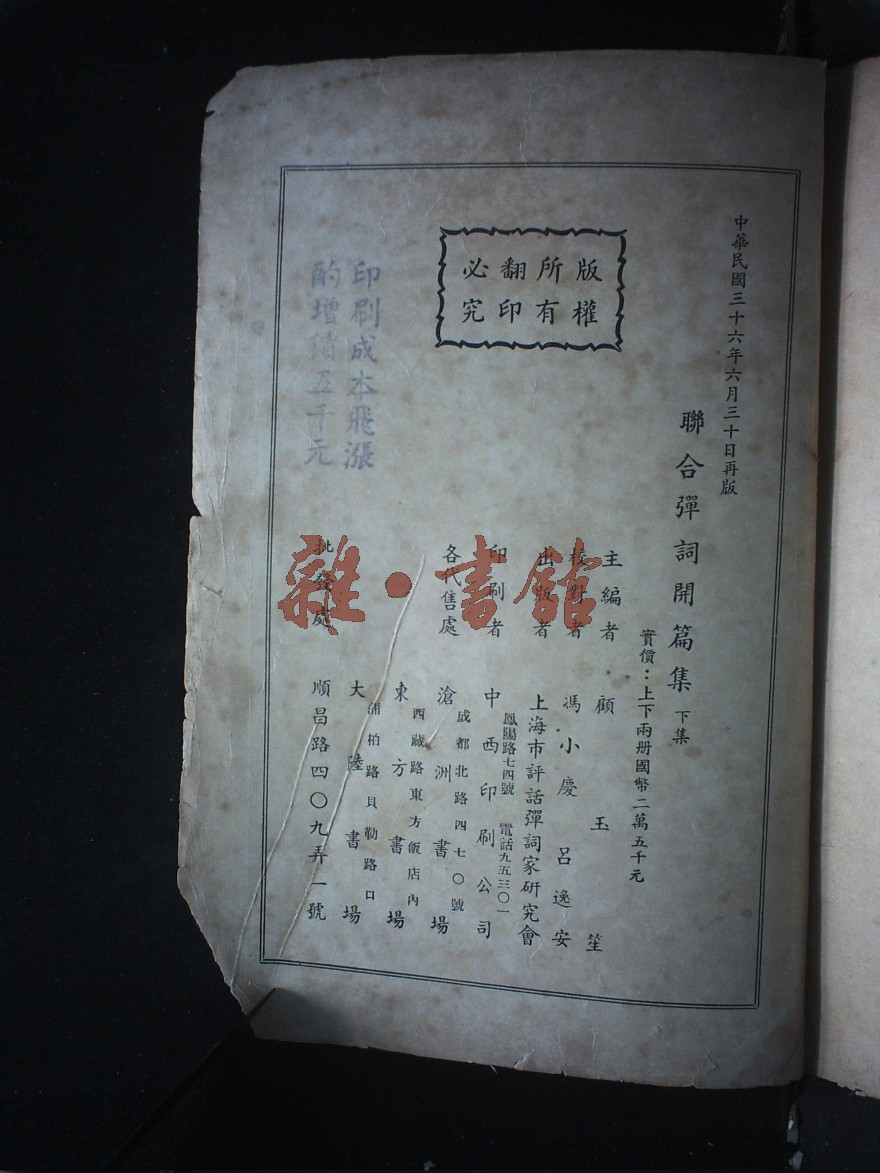 中華民國三十六年六月三十日再版
聯合彈詞開篇集 下集
實價：上下兩册國幣二萬五千元
版權
所有
翻印
必究
主編者 顧玉笙
校對者 馮小慶 呂逸安
出版者 上海市評話彈詞家研究會
鳳陽路七四號 電話九五三〇一
印刷者 中西印刷公司
各代售處
成都北路四七〇號
滄洲書場
西藏路東方飯店內
東方書場
浦柏路貝勒路口
大陸書場
批發處 順昌路四〇九弄一號
印刷成本飛漲
酌增價五千元
雜·書館